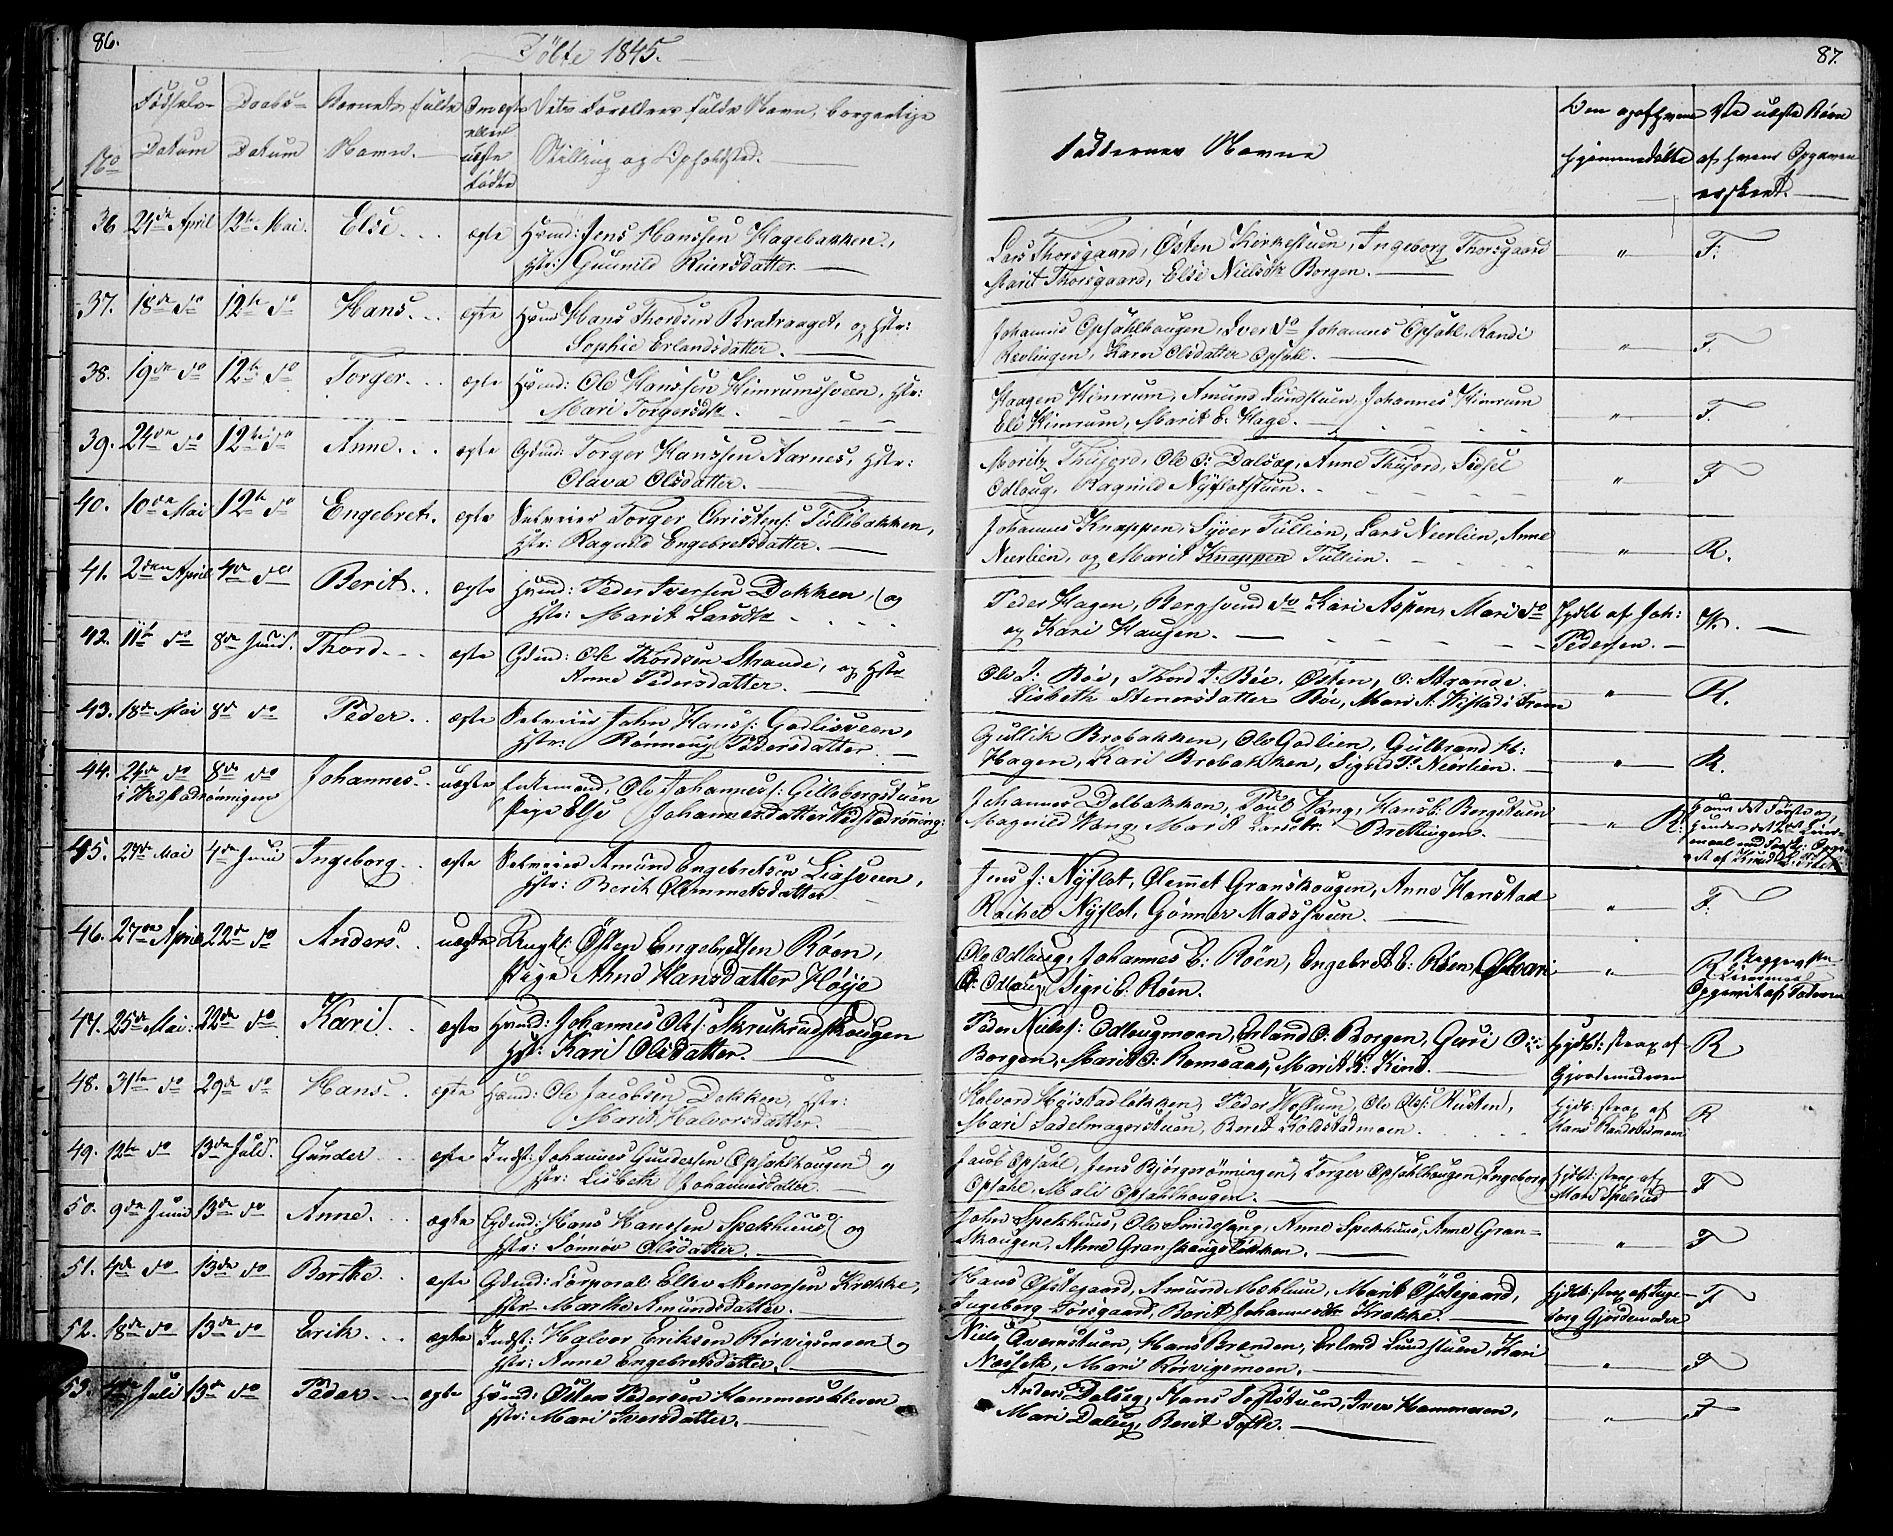 86.
Døbte 1845.
No
Fødsels-
Datum
Daabs-
Datum
Barnets fulde
Navn.
Om ægte
eller
uægte
fødte
Dets Forældres fulde Navn, borgerlige
Stilling og Opholdsted.
36 24de April 12te Mai. Else ægte Hvmd: Jens Hanssen Hagebakken,
Hstr: Gunnild Reiersdatter.
37. 18de do 12te do Hans ægte Hvmd Hans Thordsen Bratvaaget, og Hstr:
Sophie Erlandsdatter.
38. 19de do 12te do Torger ægte Hvmd: Ole Hanssen Kimrumsveen, Hstr:
Mari Torgersdtr.
39. 24de do 12te do Anne ægte Gdmd: Torger Hanssen Aarnes, Hstr:
Olava Olsdatter.
40. 10de Mai 12te do Engebret ægte Selveier Torger Christens: Tullibakken,
Hstr: Ragnild Engebretsdatter.
41. 2den April 4de do Berit ægte Hvmd: Peder Iversen Dokken, og
Hstr: Marit Larsdtr
42. 11te do 8de Juni. Thord ægte Gdmd: Ole Thordsen Strande, og Hstr
Anne Pedersdatter.
43. 18de Mai 8de do Peder ægte Selveier John Hans: Gadlisveen,
Hstr: Rønnoug Pedersdatter
44. 24de do 8de do Johannes uægte Enkemand, Ole Johannes: Gilleborgstuen
i Vedstadrønnigen Pige Else Johannesdatter Vedstadrønning:
45. 27de Mai 4de Juni Ingeborg ægte Selveier Amund Engebretsen Liesveen,
Hstr: Berit Clemmetsdatter
46. 27de April 22de do Anders uægte Ungk: Østen Engebretsen Røen,
Pige Anne Hansdatter Høije
47. 25de Mai 22de do Kari ægte Hvmd: Johannes Ols: Skrukrudskougen
Hst: Kari Olsdatter.
48. 31te do 29de do Hans ægte Hvmd: Ole Jacobsen Dokken, Hstr:
Marit Halvorsdatter.
49. 12te do 13de Juli. Gunder ægte Indst: Johannes Gundersen Opsahlhougen og
Hstr: Lisbeth Johannesdatter.
50. 9de Juni 13de do Anne ægte Gdmd: Hans Hanssen Spekhuus, og
Hstr: Sønnøv Olsdatter.
51. 4de do 13de do Berthe ægte Gdmd: Corporal Ellev Stenersen Krække,
Hstr: Marthe Amundsdatter.
52. 18de do 13de do Erik ægte Indst: Halvor Eriksen Rørvigsmoen og
Hstr: Anne Engebretsdatter.
53. Juli 13de do Peder ægte Hvmd: Østen Pedersen Hammerskleven
Hstr: Mari Iversdatter.
87.
Faddernes Navne
Om og af hvem
hjemmedøbte
Ved uægte Børn
af hvem Opgaven
er skeet.
Lars Thorsgaard, Østen Kirkestuen, Ingeborg Thorsgaard
Marit Thorsgaard, Else Nielsdtr Borgen. " F:
Johannes Opsahlhougen, Iver do Johannes Opsahl, Randi
Revlingen, Karen Olsdatter Opsahl. " F.
Haagen Kimrum, Amund Lundstuen, Johannes Kimrum
Eli Kimrum, Marit E. Hage. " F.
Moritz Thujord, Ole O: Dalseg, Anne Thujord, Sidsel
Odloug, Ragnild Nyflotstuen. " F
Johannes Knappen, Syver Tullien, Lars Neerlien, Anne
Neerlien, og Marit Knappen Tullien. " R.
Peder Hagen, Bergsvend do Kari Aspen, Mari do Hjdbt af Joh:
og Kari Haugen. Pedersen. V.
Ole T: Bøe, Thord T: Bøe, Østen O: Strande.
Lisbeth Stenersdatter Bøe, Mari A: Vestadsfrem " R.
Gullik Brobakken, Ole Gadlien, Gulbrand H:
Hagen, Kari Brobakken, Sigri Ts Neerlien. " R.
Johannes Dolbakken, Poul Vang, Hans B: Borgstuen
Magnild Vang, Marit Larsdtr. Brettingen. " R:
Hans det første og
hendes det
Ingeborg
Jens J: Nyflot, Clemmet Granskougen, Anne Hanstad
Rachel Nyflot, Gunner Madssveen. " F:
Ole Odloug, Johannes E: Røen, Engebret E: Røen, Oldvari
O: Odloug, Sigri E: Røen. " R Begges
Opgivet af Faderen
Peder Niels: Odlougmoen, Erland O: Borgen, Guri O: Hjdbt: strax af R
Borgen, Marit O: Ramsaas, Marit K: Kind. Gjordemoderen
Halvord Høistadløkken, Peder Vollum, Ole Ols: Rusten, Hjdb: strax af R
Mari Sadelmagerstuen, Berit Koldstadmoen. Hans
Jacob Opsahl, Jens Bjørgerønningen, Torger Opsahlhougen, Ingeborg Hjdbt: strax af F
Opsahl, Mali Opsahlhougen. Mari Spelrud
John Spekhuus, Ole Smidesang, Anne Spekhuus, Anne Gran-
skougen, Anne Granskougsløkken. " F
Hans Østegaard, Amund Moklun, Marit Østegaard, Hjdbt: strax af Inge- F
Ingeborg Torsgaard, Berit Johannesdtr Krække. borg Gjordemoder
Niels Qvernstuen, Hans Brenden, Erland Lundstuen, Kari
Nerseth, Mari Rørvigsmoen. " F
Anders Dalseg, Hans Toftstuen, Iver Hammeren,
Mari Dalseg, Berit Tofte. " F